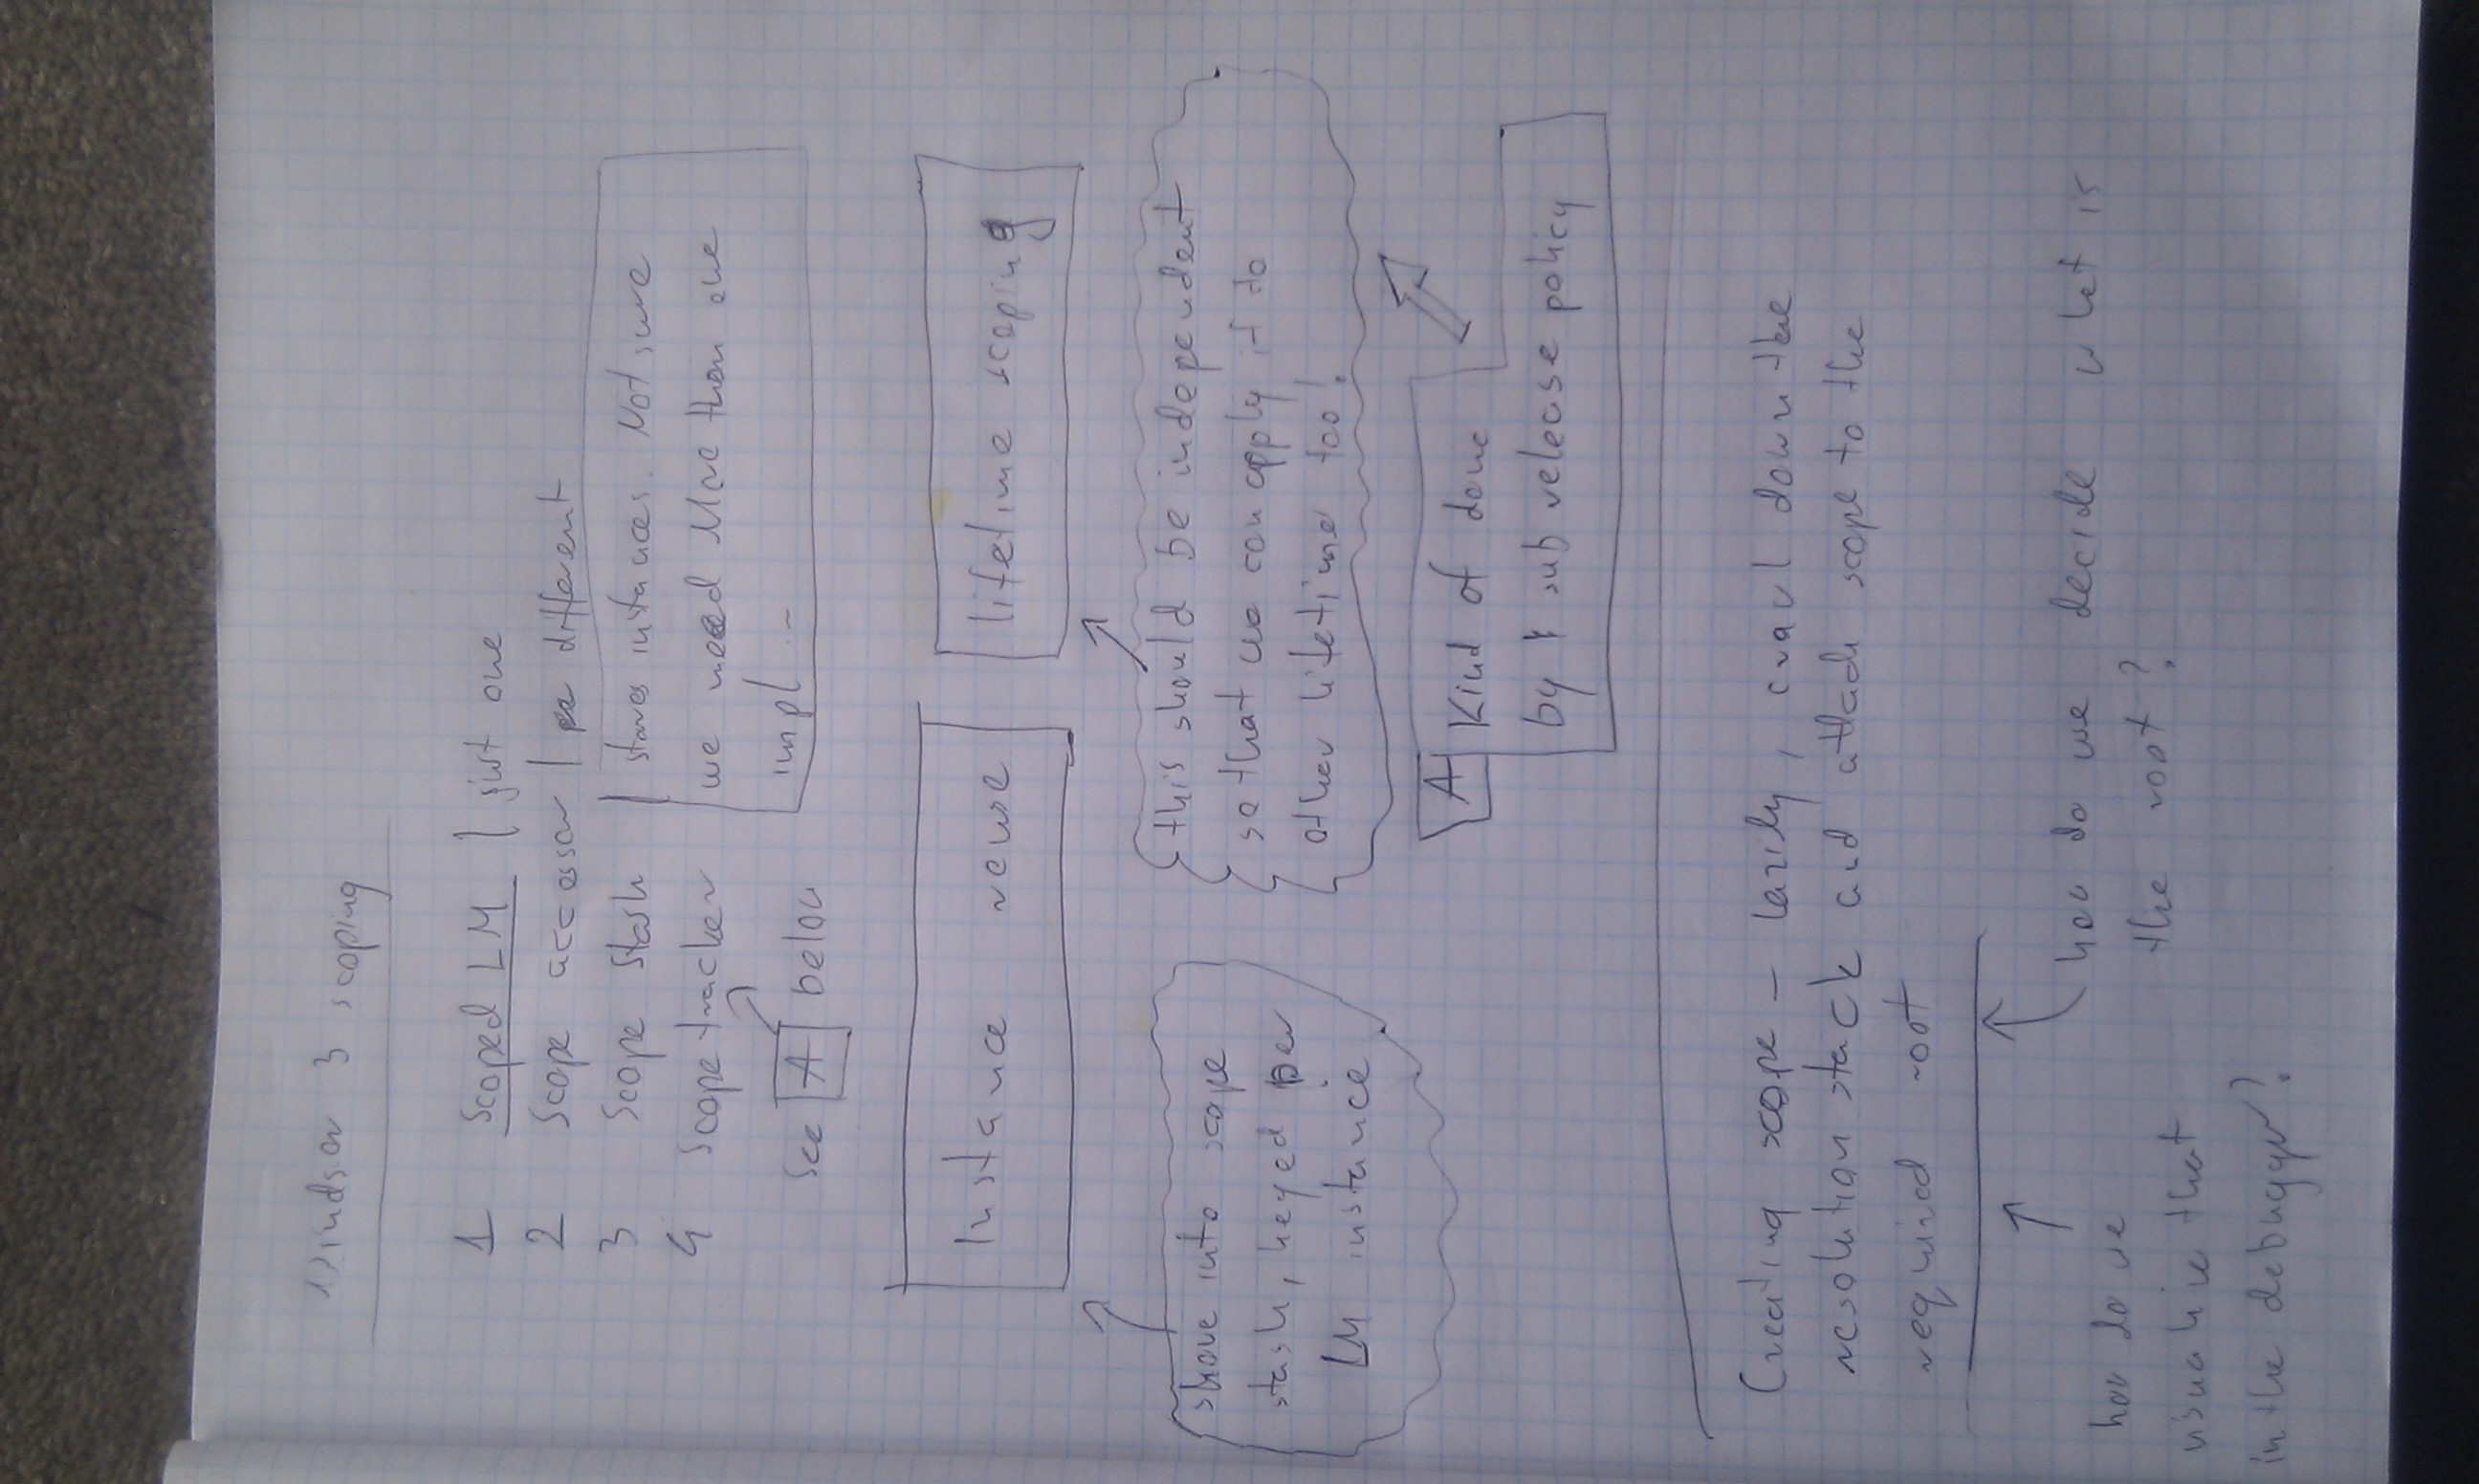 Windsor 3 scoping
1 Scoped LM | just one
2 Scope accessor | per different
3 Scope stash | stores intances. Not sure
we need More than one
impl ...
4 Scope tracker
See A below
Instance reuse
lifetime scoping
shove into scope
stash, keyed per
LM instance
this should be independent
so that we can apply it to
other lifetime too!
A Kind of done
by sub release policy
Creating scope – lazily, crawl down the
resolution stack and attach scope to the
required root
how do we
visualize that
in the debugger?
how do we decide what is
the root?